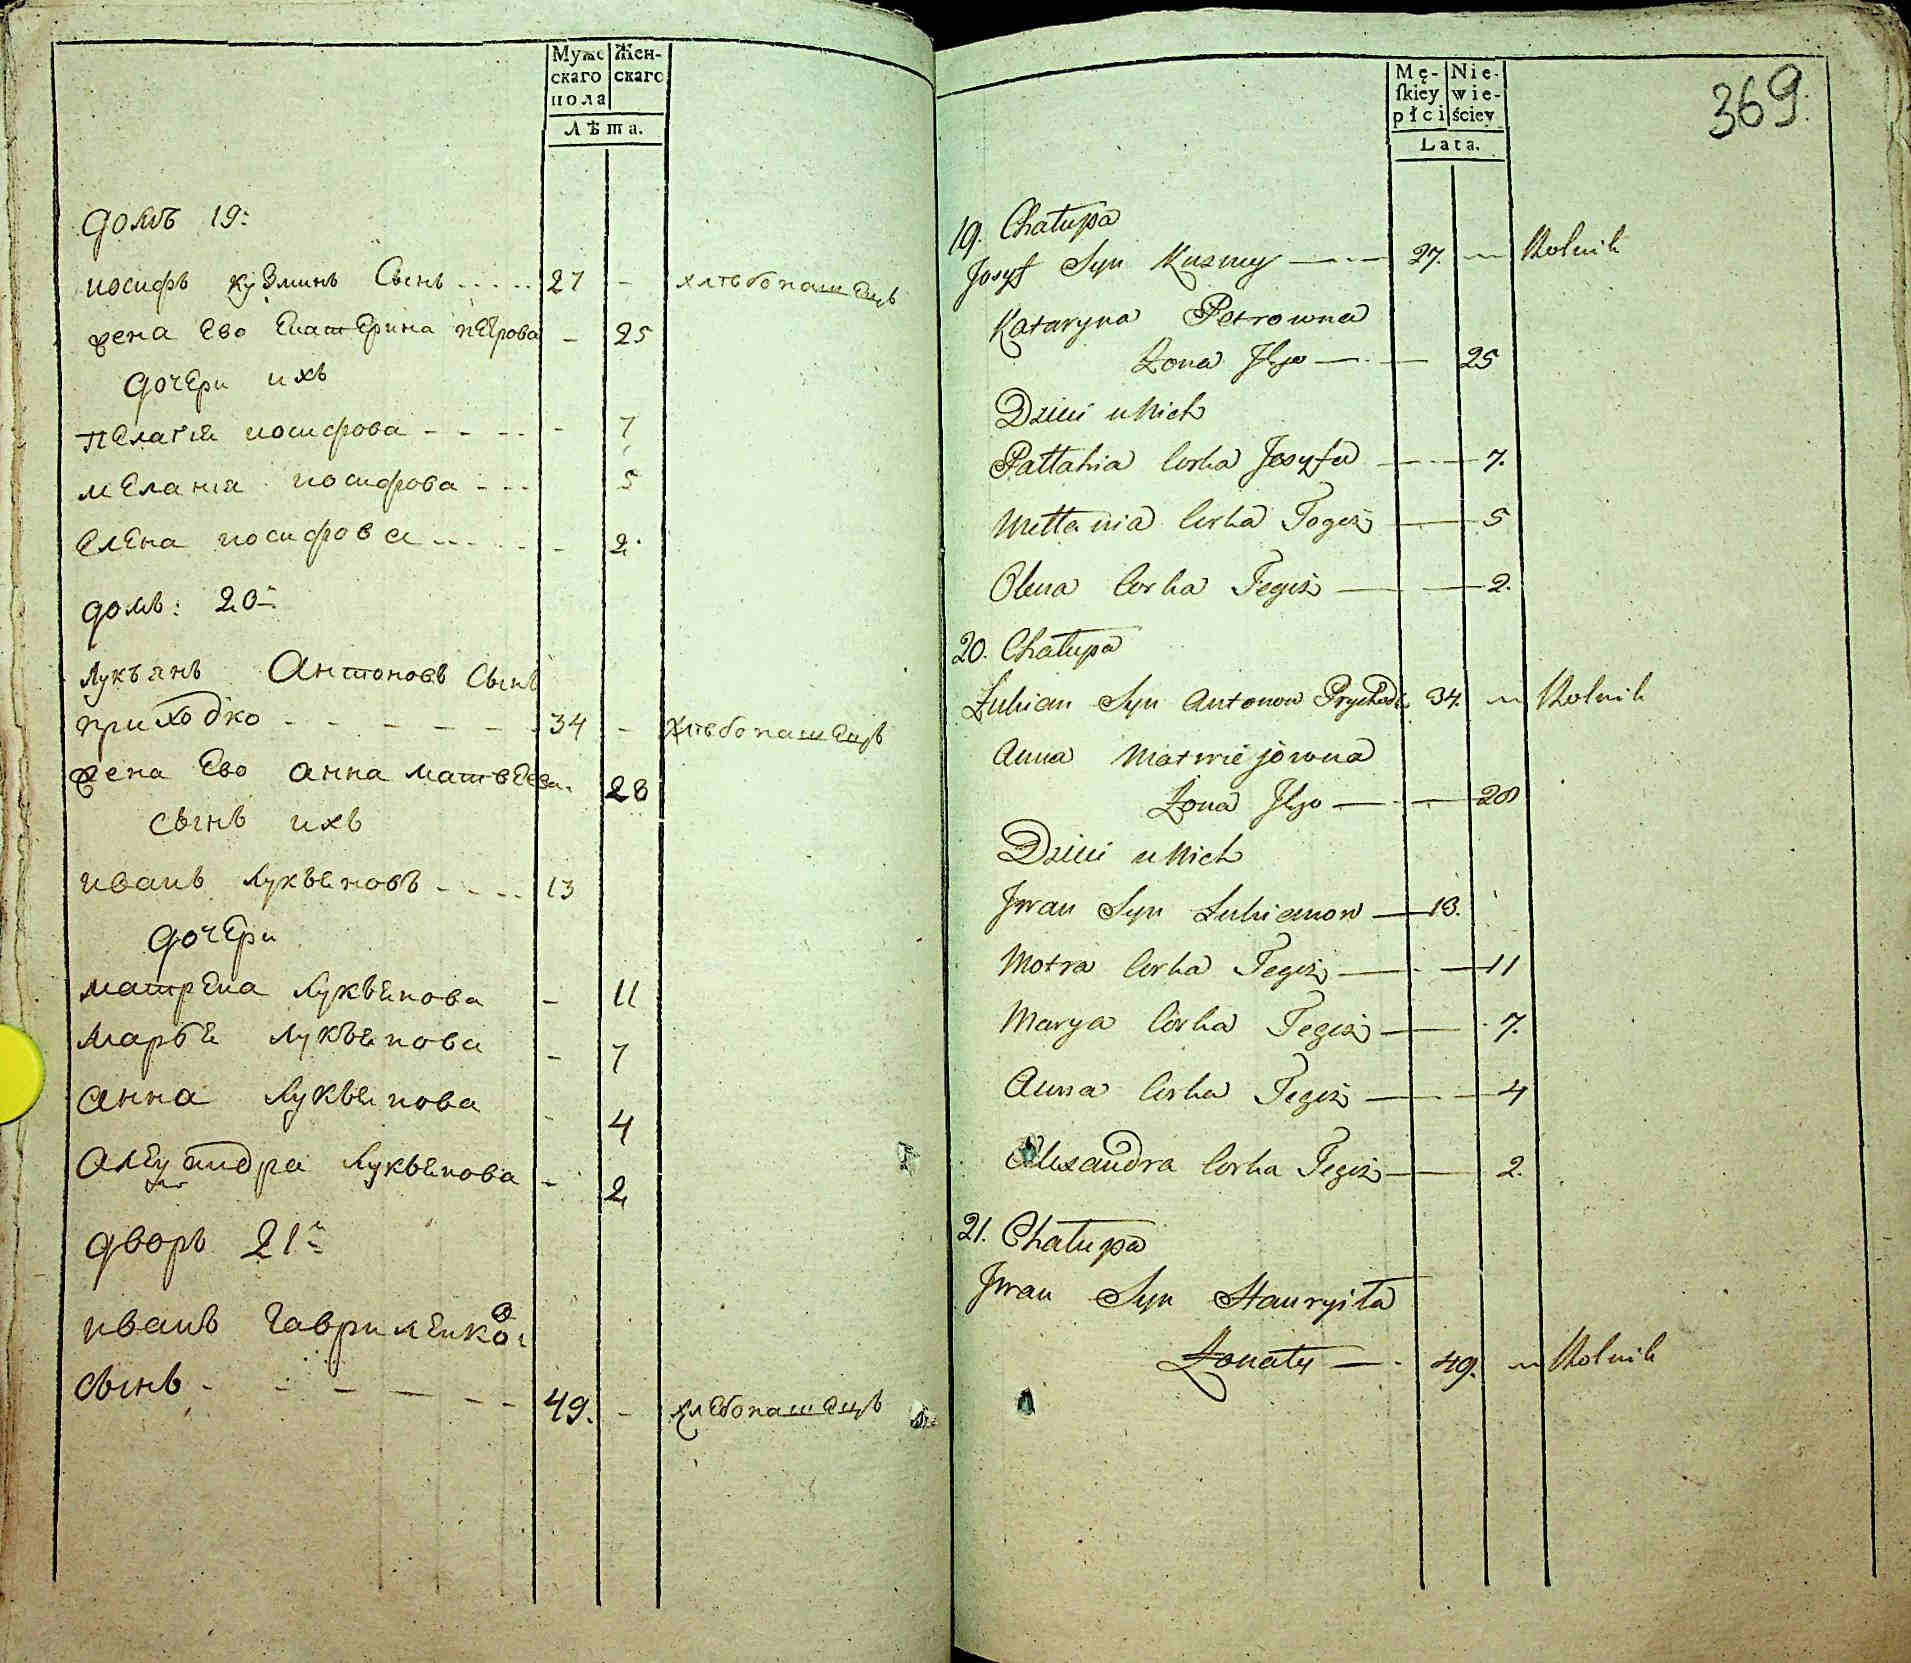 Муже Жен-
скаго скаго
пола
Лѣта.
домъ 19:
иосифъ кузминъ Сынъ 27 - хлѣбопашецъ
жена Ево Екатерина пЕтрова - 25
дочери ихъ
пЕлагия иосифова - 7
мЕлания иосифова 5
ЕлЕна иосифова - 2.
домъ: 20:
лукъянъ Антоновъ Сынъ
приходко 34 - хлѣбопашецъ
жена Ево анна матвЕева. 28
сынъ ихъ
иванъ лукъяновъ 13
дочЕри
матрЕна лукъянова - 11
марья лукъянова - 7
анна лукъянова - 4
александра лукъянова - 2
дворъ 21:
иванъ гавриленков
сынъ 49. - хлебопашецъ
369.
Mę- Nie-
ſkiey wie-
płci ściey
Lata.
19. Chałupa
Josyf Syn Kuzmy 27. Rolnik
Kataryna Petrowna
Żona Jgo 25
Dzieci u Nich
Pałłahia Corka Josyfa 7.
Mełłania Corka Togoż 5
Olena Corka Tegoż 2.
20. Chałupa
Łukian Syn Antonow Prychodk 34. Rolnik
Anna Matwiejowna
Żona Jgo 28
Dzieci u Nich
Jwan Syn Łukianow 13.
Motra Corka Tegoż 11
Marya Corka Tegoż 7.
Anna Corka Tegoż 4
Alexandra Corka Tegoż 2.
21. Chałupa
Jwan Syn Hauryiła
Żonaty 49. Rolnik